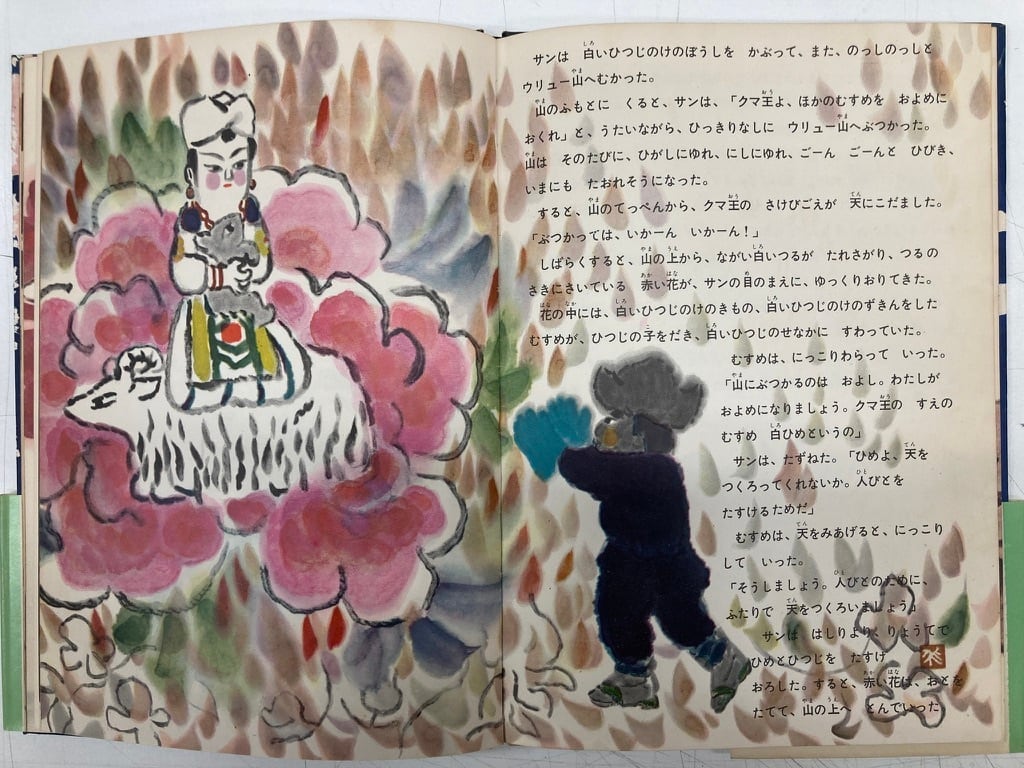 サンは　白いひつじのけのぼうしを　かぶって、また、のっしのっしと
ウリュー山へむかった。
山のふもとに　くると、サンは、「クマ王よ、ほかのむすめを　およめに
おくれ」と、うたいながら、ひっきりなしに　ウリュー山へぶつかった。
山は　そのたびに、ひがしにゆれ、にしにゆれ、ごーん　ごーんと　ひびき、
いまにも　たおれそうになった。
すると、山のてっぺんから、クマ王の　さけびごえが　天にこだました。
「ぶつかっては、いかーん　いかーん！」
しばらくすると、山の上から、ながい白いつるが　たれさがり、つるの
さきにさいている　赤い花が、サンの目のまえに、ゆっくりおりてきた。
花の中には、白いひつじのけのきもの、白いひつじのけのずきんをした
むすめが、ひつじの子をだき、白いひつじのせなかに　すわっていた。
むすめは、にっこりわらって　いった。
「山にぶつかるのは　およし。わたしが
およめになりましょう。クマ王の　すえの
むすめ　白ひめというの」
サンは、たずねた。「ひめよ、天を
つくろってくれないか。人びとを
たすけるためだ」
むすめは、天をみあげると、にっこり
して　いった。
「そうしましょう。人びとのために、
ふたりで　天をつくろいましょう」
サンは　はしりより、りょうてで
ひめとひつじを　たすけ
おろした。すると、赤い花は、おとを
たてて、山の上へ　とんでいった。